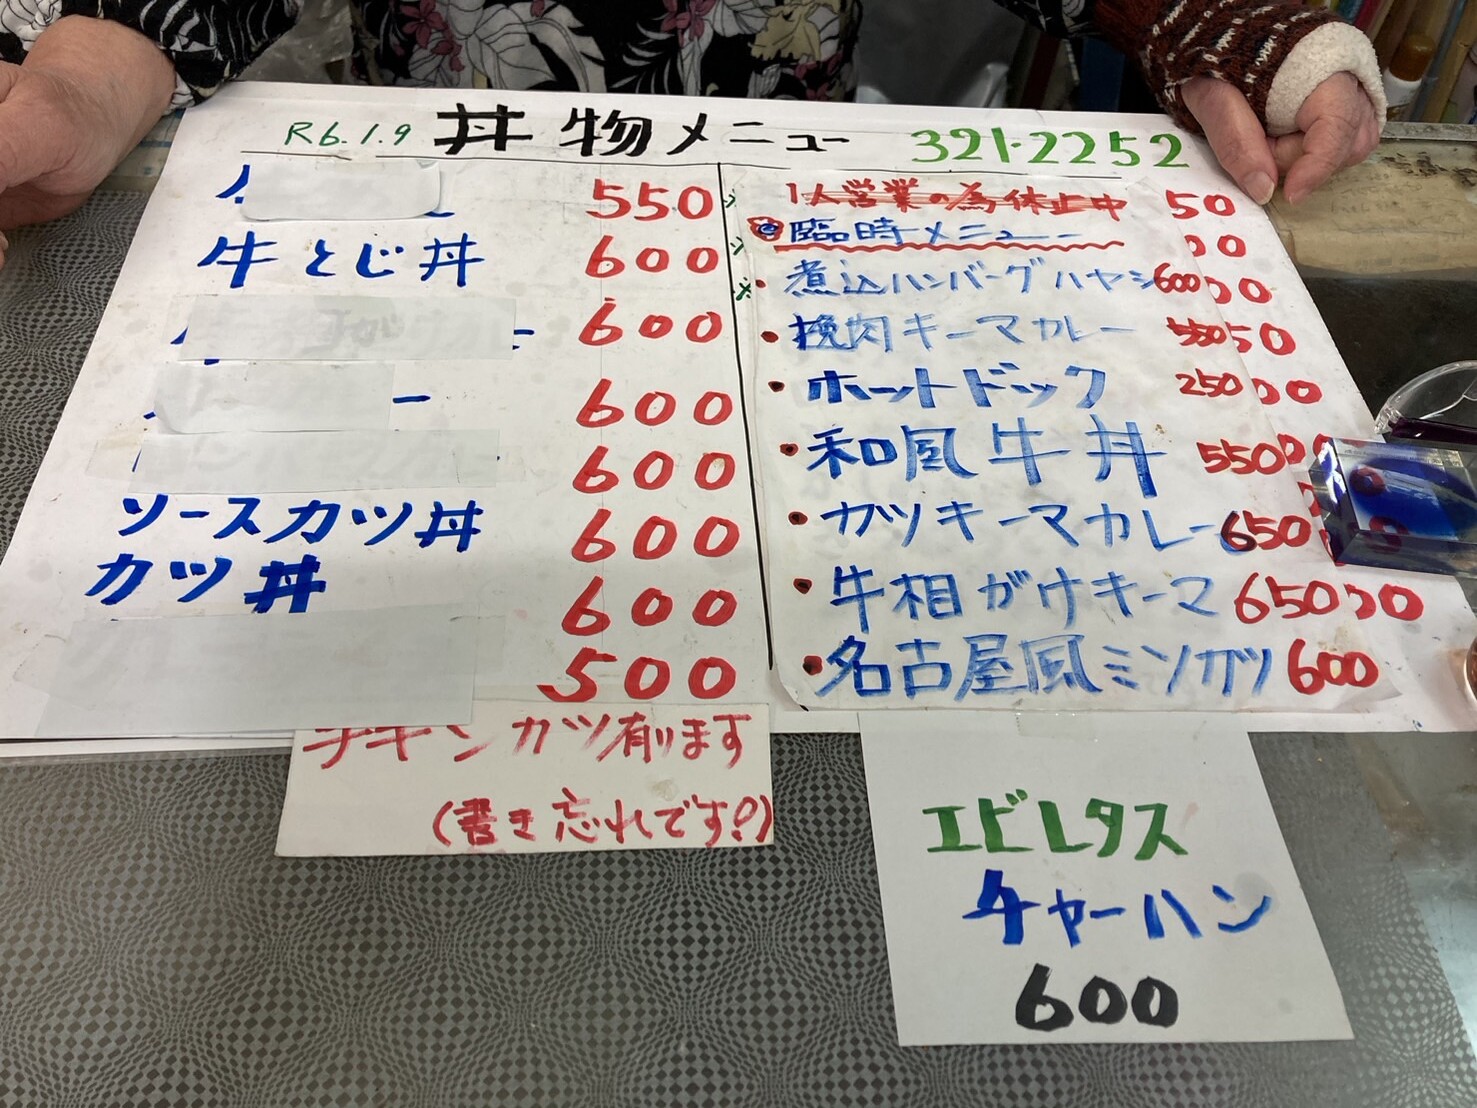 R6.1.9 丼物メニュー 321-2252
550
牛とじ丼 600
600
600
600
ソースカツ丼 600
カツ丼 600
500
チキンカツ有ります
(書き忘れです?)
1人営業の為休止中 50
臨時メニュー 00
・煮込ハンバーグハヤシ 600 00
・挽肉キーマカレー 550 50
・ホットドック 250 00
・和風牛丼 550 00
・カツキーマカレー 650
・牛相がけキーマ 650 00
・名古屋風ミソカツ 600
エビレタス
チャーハン
600